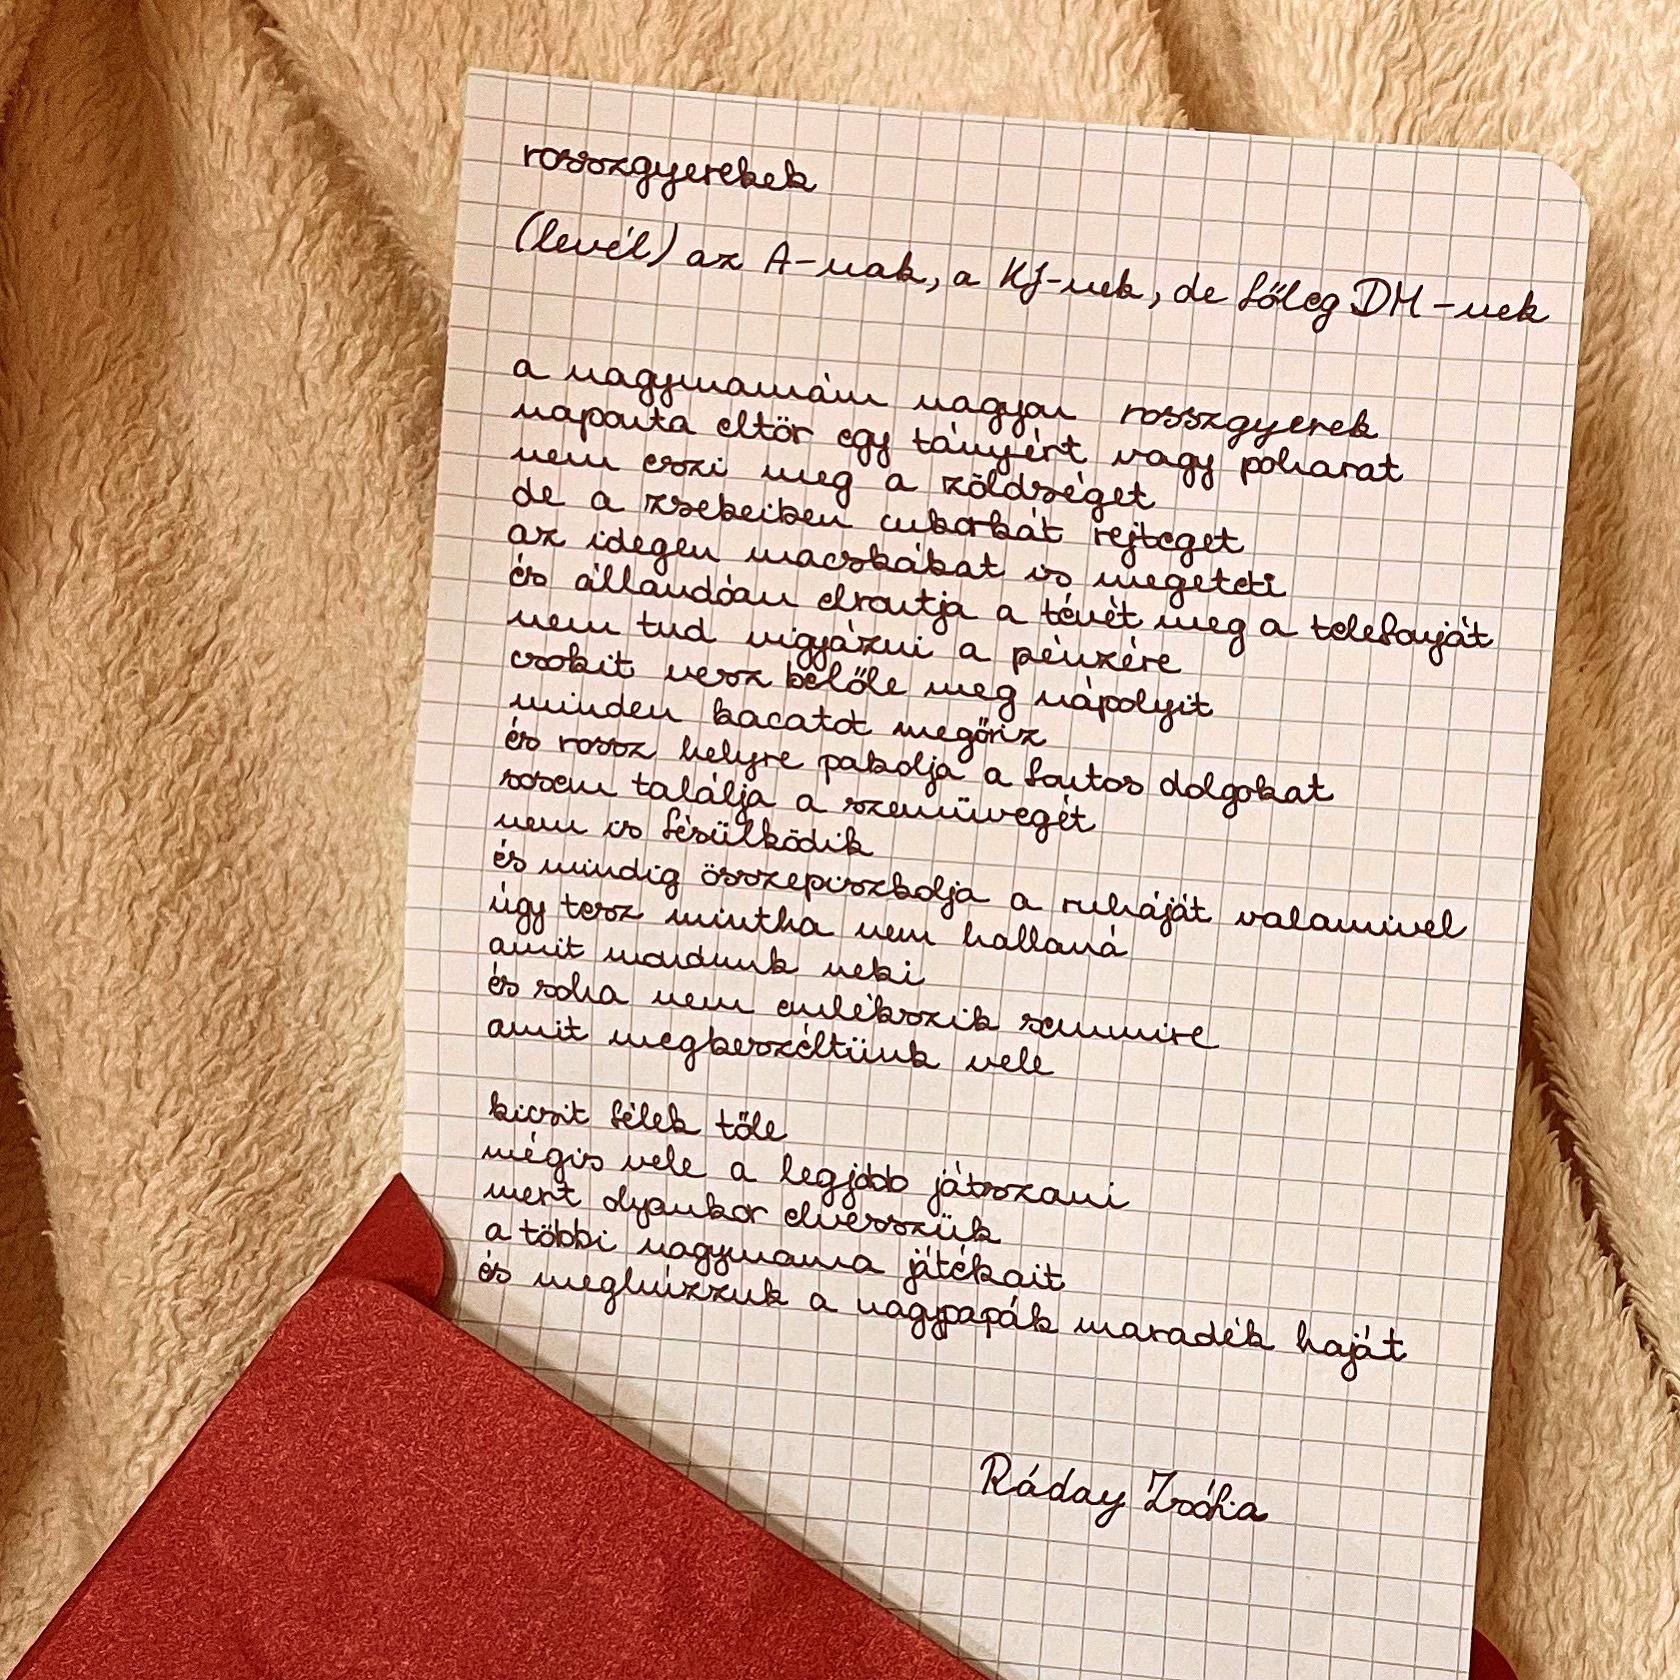 rosszgyerekek
(levél) az A-nak, a KJ-nek, de főleg DM-nek
a nagymamám nagyon rosszgyerek
naponta eltör egy tányért vagy poharat
nem eszi meg a zöldséget
de a zsebeiben cukorkát rejteget
az idegen macskákat is megeteti
és állandóan elrontja a tévét meg a telefonját
nem tud vigyázni a pénzére
csokit vesz belőle meg nápolyit
minden kacatot megőriz
és rossz helyre pakolja a fontos dolgokat
sosem találja a szemüvegét
nem is fésülködik
és mindig összepiszkolja a ruháját valamivel
úgy tesz mintha nem hallaná
amit mondunk neki
és soha nem emlékszik semmire
amit megbeszéltünk vele
kicsit félek tőle
mégis vele a legjobb játszani
mert olyankor elvesszük
a többi nagymama játékait
és meghúzzuk a nagypapák maradék haját
Ráday Zsófia